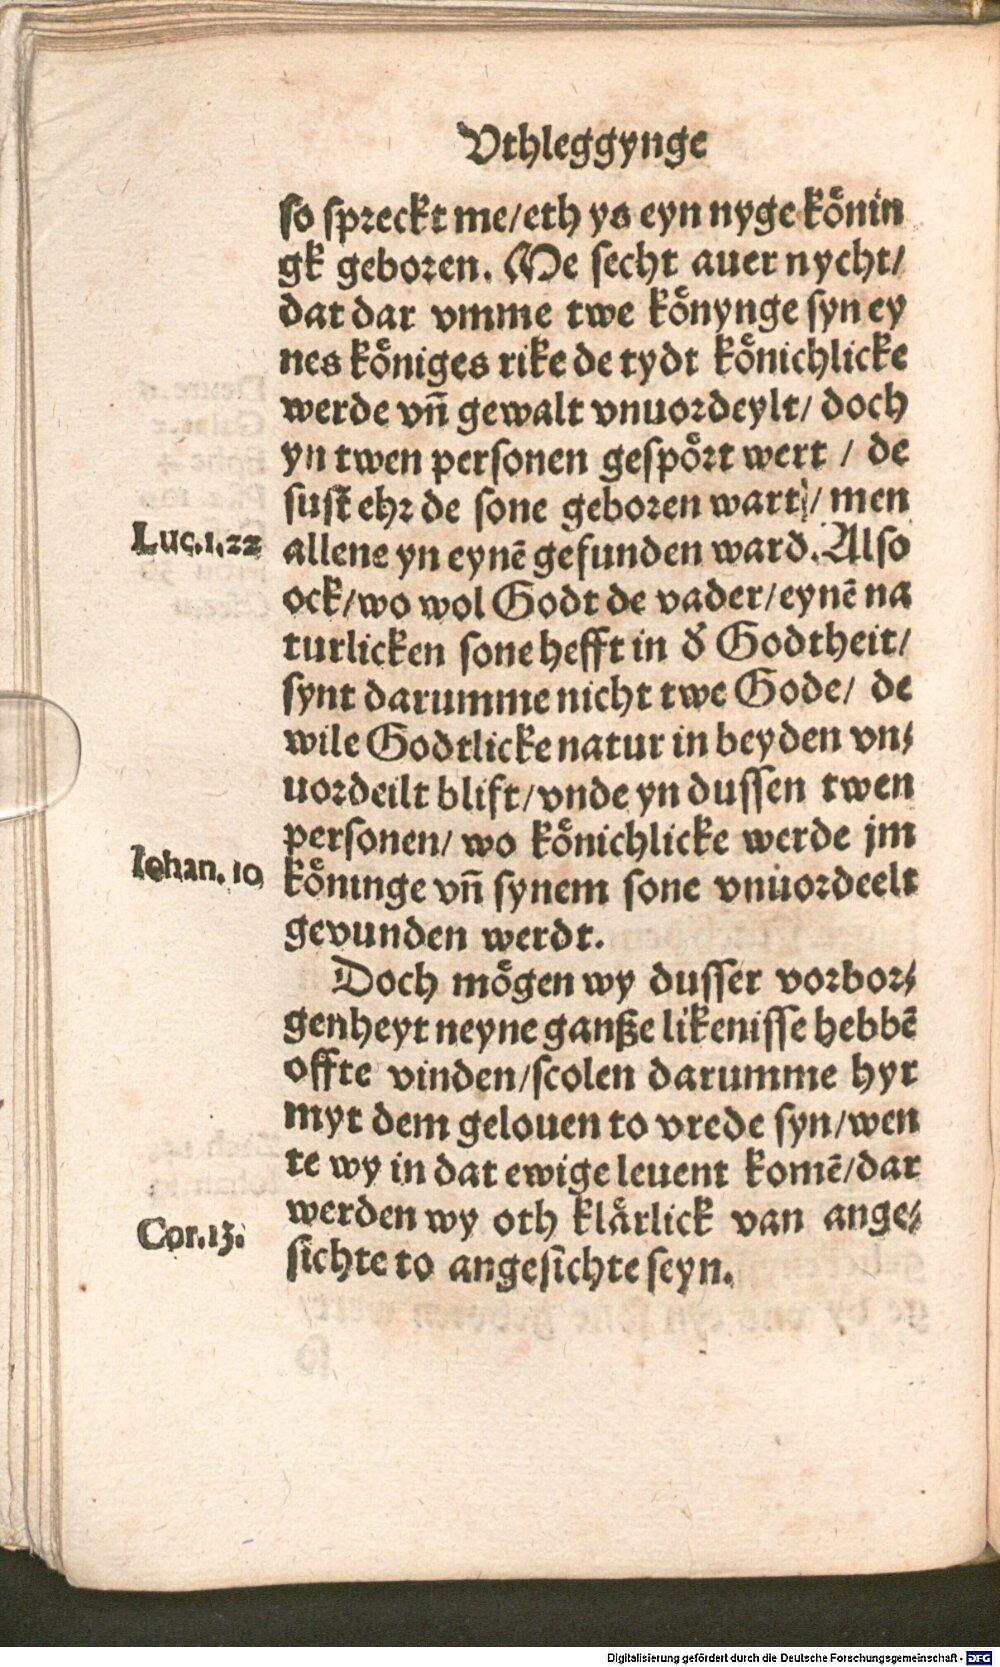 Vthleggynge
so spreckt me/eth ys eyn nyge koͤnin
gk geboren. Me secht auer nycht/
dat dar vmme twe koͤnynge syn ey
nes koͤniges rike de tydt koͤnichlicke
werde vñ gewalt vnuordeylt/ doch
yn twen personen gespoͤrt wert / de
sust ehr de sone geboren wart / men
Luc.1.22
allene yn eynē gefunden ward. Also
ock/wo wol Godt de vader/eynē na
turlicken sone hefft in d' Godtheit/
synt darumme nicht twe Gode/ de
wile Godtlicke natur in beyden vn⸗
uordeilt blift/vnde yn dussen twen
personen/ wo koͤnichlicke werde jm
Iohan. 10
koͤninge vñ synem sone vnuordeelt
gevunden werdt.
Doch moͤgen wy dusser vorbor⸗
genheyt neyne gantze likenisse hebbē
offte vinden/scolen darumme hyr
myt dem gelouen to vrede syn/wen
te wy in dat ewige leuent komē/dar
werden wy oth klaͤrlick van ange⸗
Cor.13.
sichte to angesichte seyn.
Digitalisierung gefördert durch die Deutsche Forschungsgemeinschaft - DFG